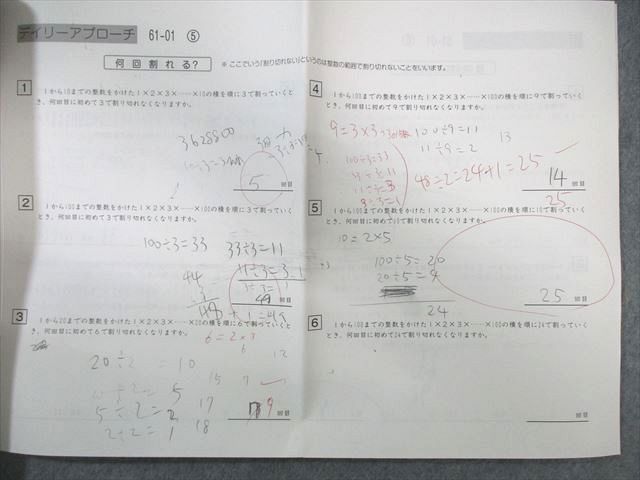 デイリーアプローチ 61-01 ⑤
何回割れる？ ※ここでいう「割り切れない」というのは整数の範囲で割り切れないことをいいます。
1
1から10までの整数をかけた1×2×3×……×10の積を順に3で割っていくと
き、何回目に初めて3で割り切れなくなりますか。
3628800
5 回目
2
1から100までの整数をかけた1×2×3×……×100の積を順に3で割っていく
とき、何回目に初めて3で割り切れなくなりますか。
100÷3=33 33÷3=11
44 11÷3=3
49 回目
+1=49
3
1から20までの整数をかけた1×2×3×……×20の積を順に6で割っていくと
き、何回目に初めて6で割り切れなくなりますか。
6=2×3
20÷2=10
5
5÷2=2
2÷2=1
15
17
18
12
9 回目
4
1から100までの整数をかけた1×2×3×……×100の積を順に9で割っていく
とき、何回目に初めて9で割り切れなくなりますか。
9=3×3 100÷9=11 13
11÷9=2
100÷3=33
33÷3=11
11÷3=3
48÷2=24 24+1=25
14 回目
25
5
1から100までの整数をかけた1×2×3×……×100の積を順に10で割っていく
とき、何回目に初めて10で割り切れなくなりますか。
10=2×5
100÷5=20
20÷5=4
24
25 回目
6
1から100までの整数をかけた1×2×3×……×100の積を順に24で割っていく
とき、何回目に初めて24で割り切れなくなりますか。
回目